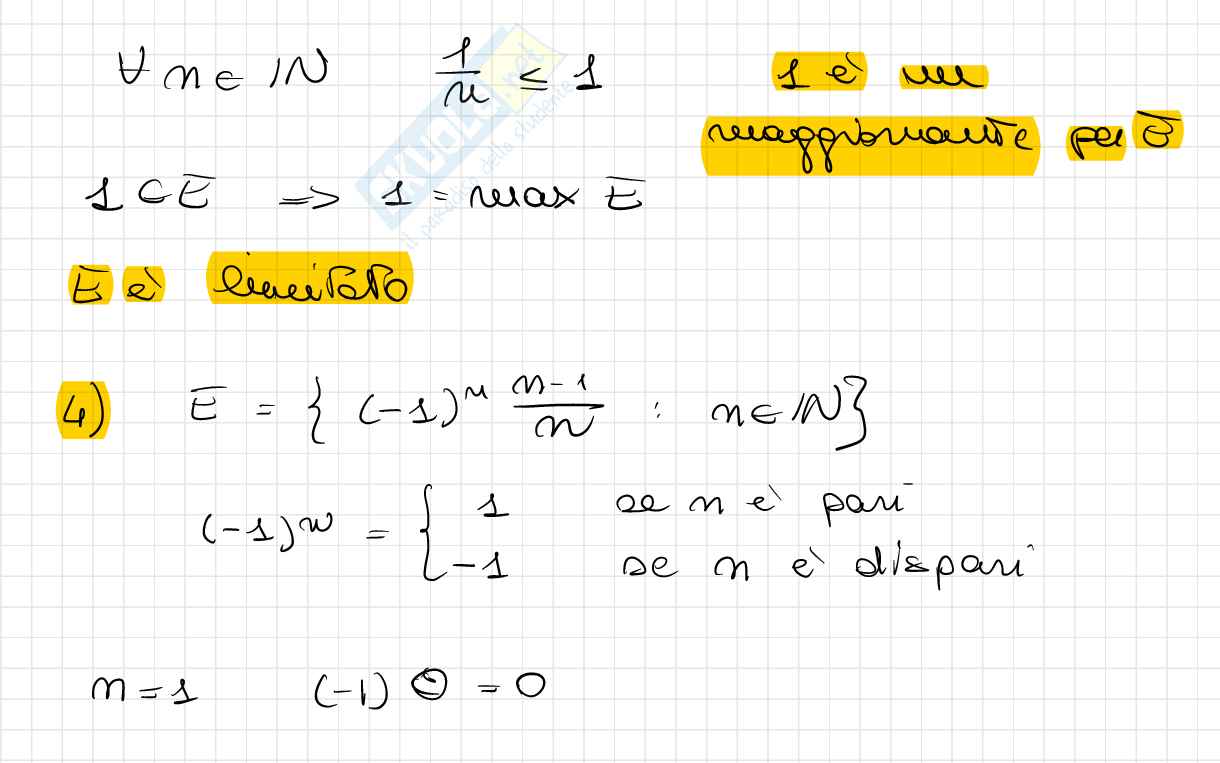 ∀ n ∈ ℕ 1/n ≤ 1 1 è un
maggiorante per E
1 ∈ E => 1 = max E
E è limitato
4) E = { (-1)^n (n-1)/n : n ∈ ℕ }
(-1)^n = { 1 se n è pari
-1 se n è dispari
n = 1 (-1) 0 = 0
SKUOLA.net
il paradiso dello studente